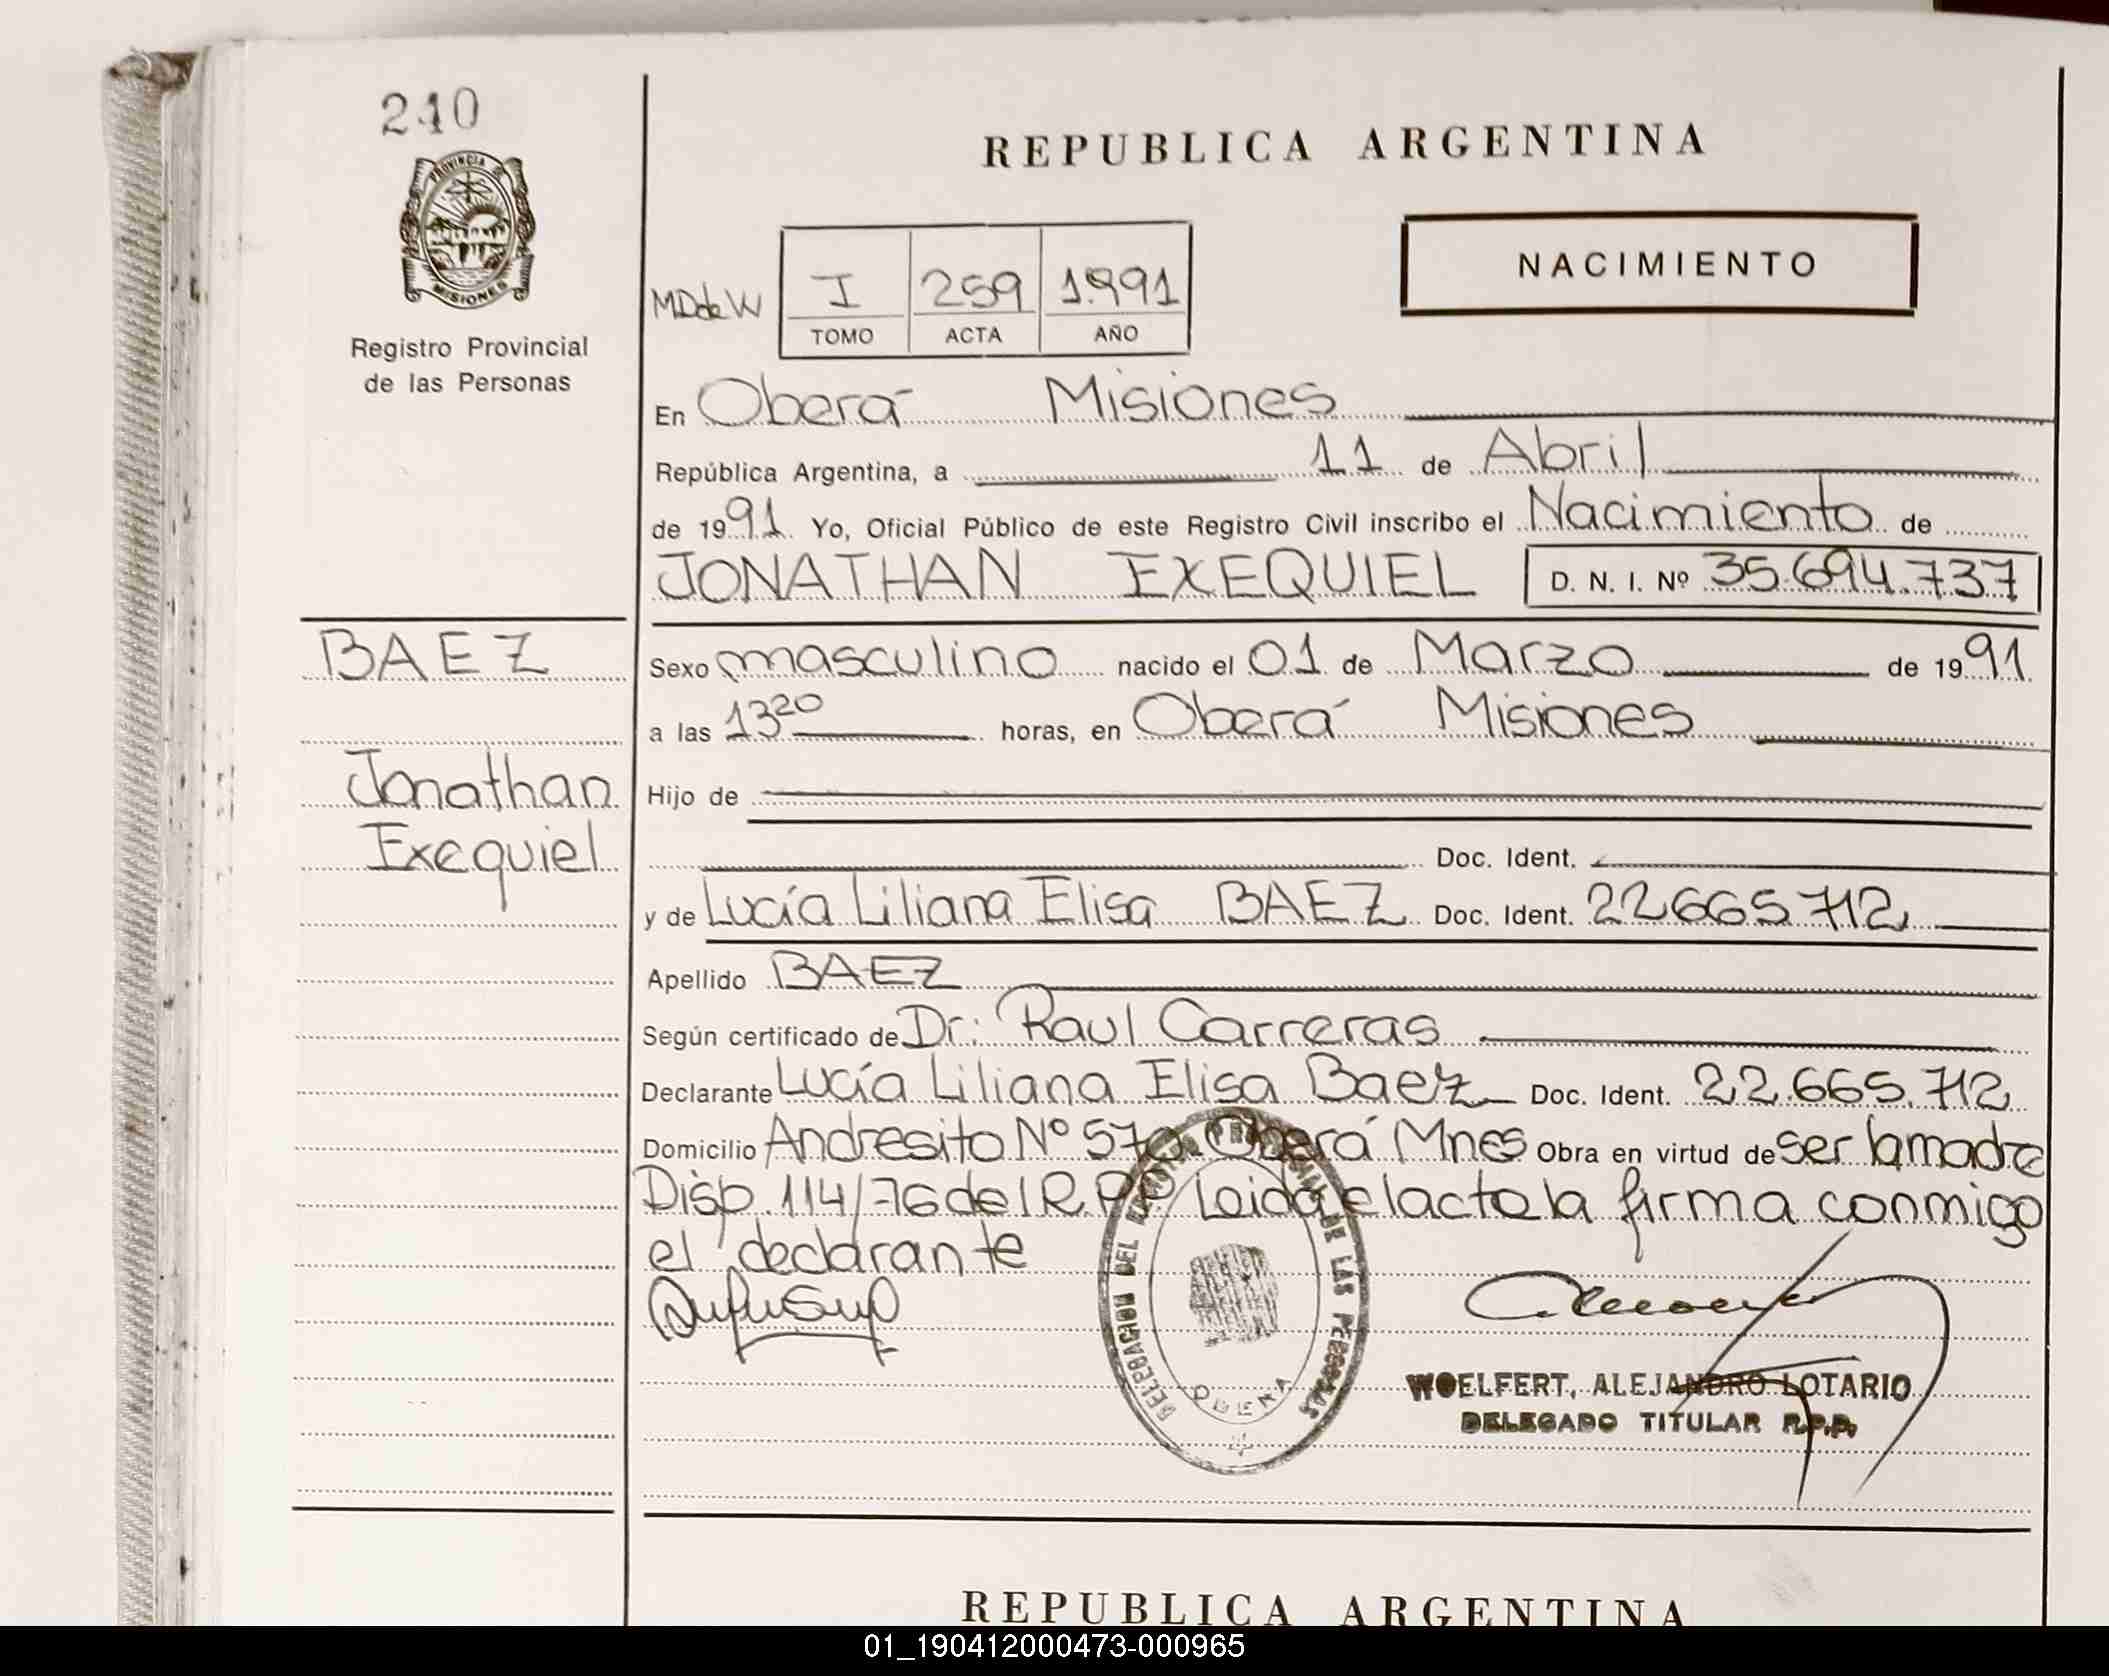 240
PROVINCIA DE
MISIONES
Registro Provincial
de las Personas
REPUBLICA ARGENTINA
NACIMIENTO
MDdeW I 259 1.991
TOMO ACTA AÑO
En Oberá Misiones
República Argentina, a 11 de Abril
de 1991 Yo, Oficial Público de este Registro Civil inscribo el Nacimiento de
JONATHAN EXEQUIEL D. N. I. Nº 35.694.737
BAEZ
Jonathan
Exequiel
Sexo masculino nacido el 01 de Marzo de 1991
a las 13 20 horas, en Oberá Misiones
Hijo de
Doc. Ident.
y de Lucía Liliana Elisa BAEZ Doc. Ident. 22665712
Apellido BAEZ
Según certificado de Dr: Raul Carreras
Declarante Lucía Liliana Elisa Baez Doc. Ident. 22.665.712
Domicilio Andresito Nº Oberá Mnes Obra en virtud de ser la madre
Disp. 114/76 del R.P.P. Leida el acta la firma conmigo
el declarante
DELEGACION DEL REGISTRO PROVINCIAL DE LAS PERSONAS
OBERA
WOELFERT, ALEJANDRO LOTARIO
DELEGADO TITULAR R.P.P.
REPUBLICA ARGENTINA
01_190412000473-000965